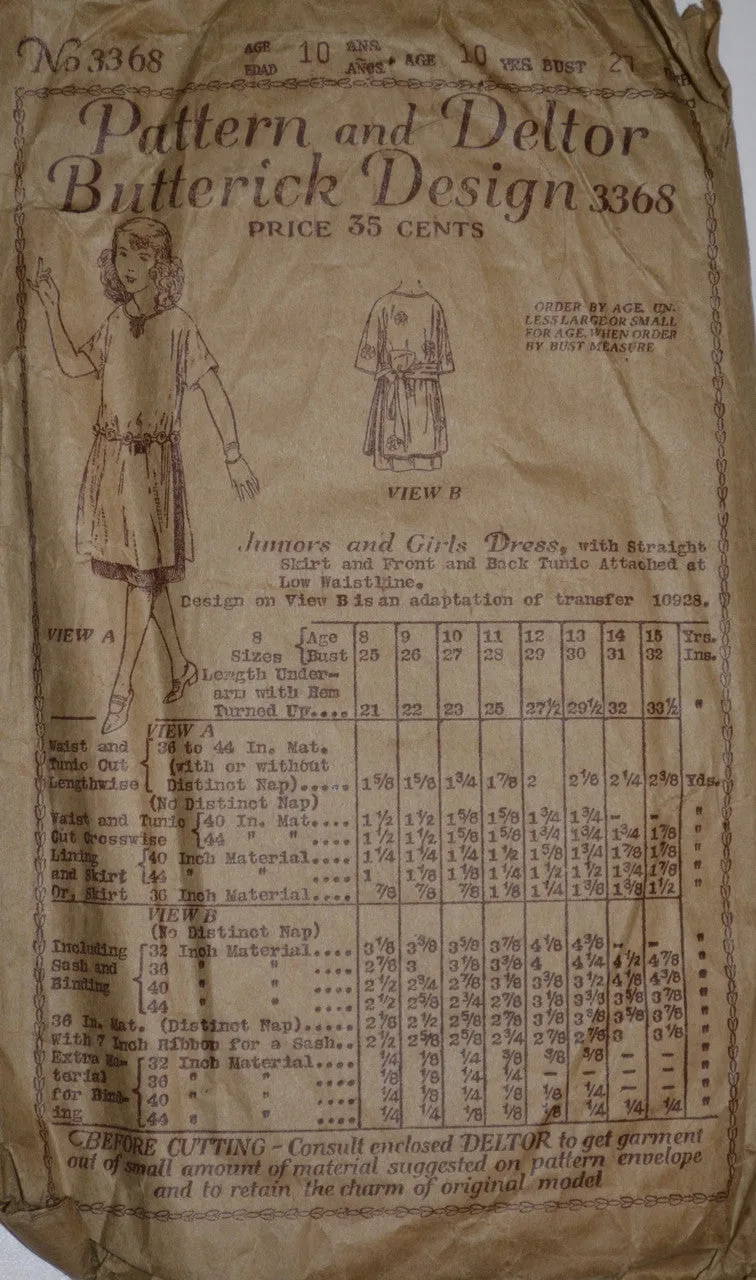 No 3368 AGE EDAD 10 ANS. AÑOS. AGE 10 YRS BUST 27
Pattern and Deltor
Butterick Design 3368
PRICE 35 CENTS
ORDER BY AGE UN-
LESS LARGE OR SMALL
FOR AGE, WHEN ORDER
BY BUST MEASURE
VIEW B
Juniors and Girls Dress, with Straight
Skirt and Front and Back Tunic Attached at
Low Waistline.
Design on View B is an adaptation of transfer 10928.
VIEW A
8 Age 8 9 10 11 12 13 14 15 Yrs.
Sizes Bust 25 26 27 28 29 30 31 32 Ins.
Length Under-
arm with Hem
Turned Up.... 21 22 23 25 27½ 29½ 32 33½ "
VIEW A
Waist and 36 to 44 In. Mat.
Tunic Cut (with or without
Lengthwise Distinct Nap)..... 1⅝ 1⅝ 1¾ 1⅞ 2 2⅛ 2¼ 2⅜ Yds.
(No Distinct Nap)
Waist and Tunic 40 In. Mat.... 1½ 1½ 1⅝ 1⅝ 1¾ 1¾ - - "
Cut Crosswise 44 " " .... 1½ 1½ 1⅝ 1⅝ 1¾ 1¾ 1¾ 1⅞ "
Lining 40 Inch Material.... 1¼ 1¼ 1¼ 1½ 1⅝ 1¾ 1⅞ 1⅞ "
and Skirt 44 " " .... 1 1⅛ 1⅛ 1¼ 1½ 1½ 1¾ 1⅞ "
Or, Skirt 36 Inch Material.... ⅞ ⅞ ⅞ 1⅛ 1¼ 1⅜ 1⅜ 1½ "
VIEW B
(No Distinct Nap)
Including 32 Inch Material.... 3⅛ 3⅜ 3⅝ 3⅞ 4⅛ 4⅜ - - "
Sash and 36 " " .... 2⅞ 3 3⅛ 3⅜ 4 4¼ 4½ 4⅞ "
Binding 40 " " .... 2½ 2¾ 2⅞ 3⅛ 3⅜ 3½ 4⅛ 4⅜ "
44 " " .... 2½ 2⅝ 2¾ 2⅞ 3⅛ 3⅜ 3⅝ 3⅞ "
36 In. Mat. (Distinct Nap)..... 2⅛ 2½ 2⅝ 2⅞ 3⅛ 3⅜ 3⅝ 3⅞ "
With 7 Inch Ribbon for a Sash.. 2½ 2⅝ 2⅝ 2¾ 2⅞ 2⅞ 3 3⅛ "
Extra Ma- 32 Inch Material.... ¼ ⅛ ¼ ⅜ ⅜ ⅜ - - "
terial 36 " " .... ⅛ ⅛ ¼ ¼ - - - - "
for Bind- 40 " " .... ¼ ⅛ ¼ ⅛ ⅛ ¼ - - "
ing 44 " " .... ¼ ¼ ⅛ ⅛ ⅛ ¼ ¼ ¼ "
BEFORE CUTTING - Consult enclosed DELTOR to get garment
out of small amount of material suggested on pattern envelope
and to retain the charm of original model